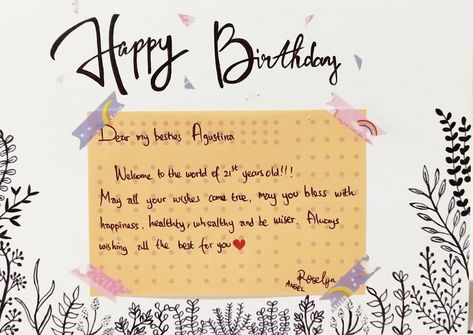 Happy Birthday
Dear my besties Agustina
Welcome to the world of 21st years old!!!
May all your wishes come true, may you bless with
happiness, healthty, wheathy and be wiser. Always
wishing all the best for you ❤
Roselyn
ANGEL